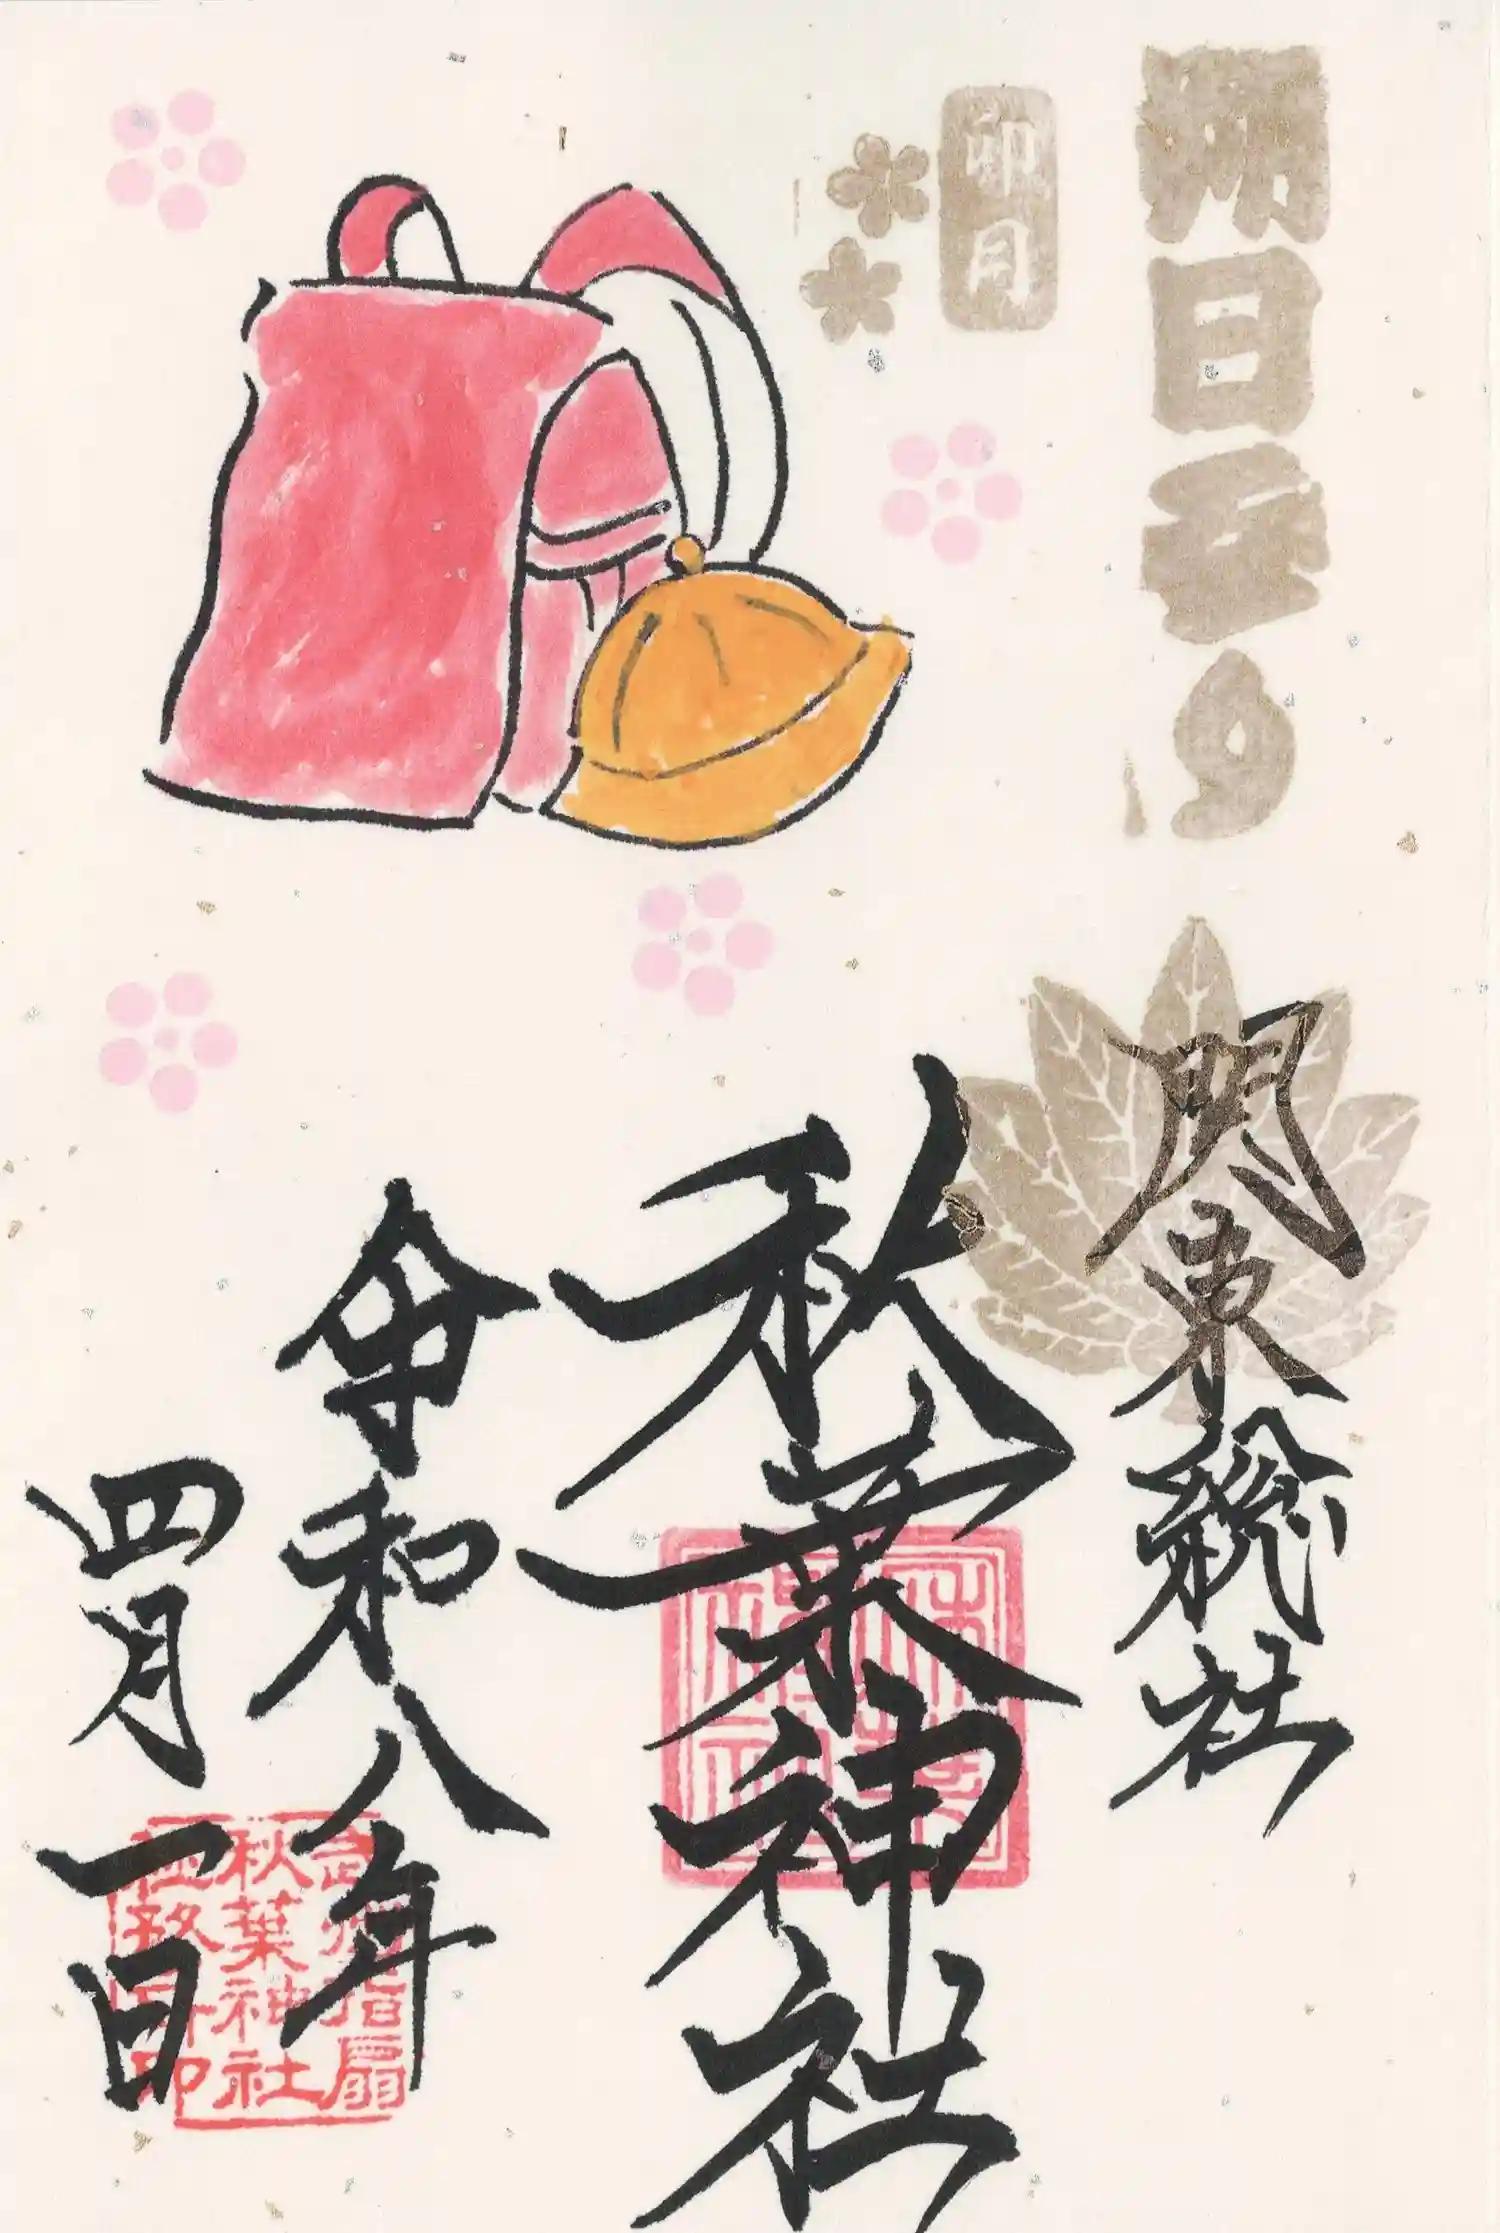 朔日まいり
卯月
関東総社
秋葉神社
令和八年
四月一日
指扇
秋葉神社
社務所印